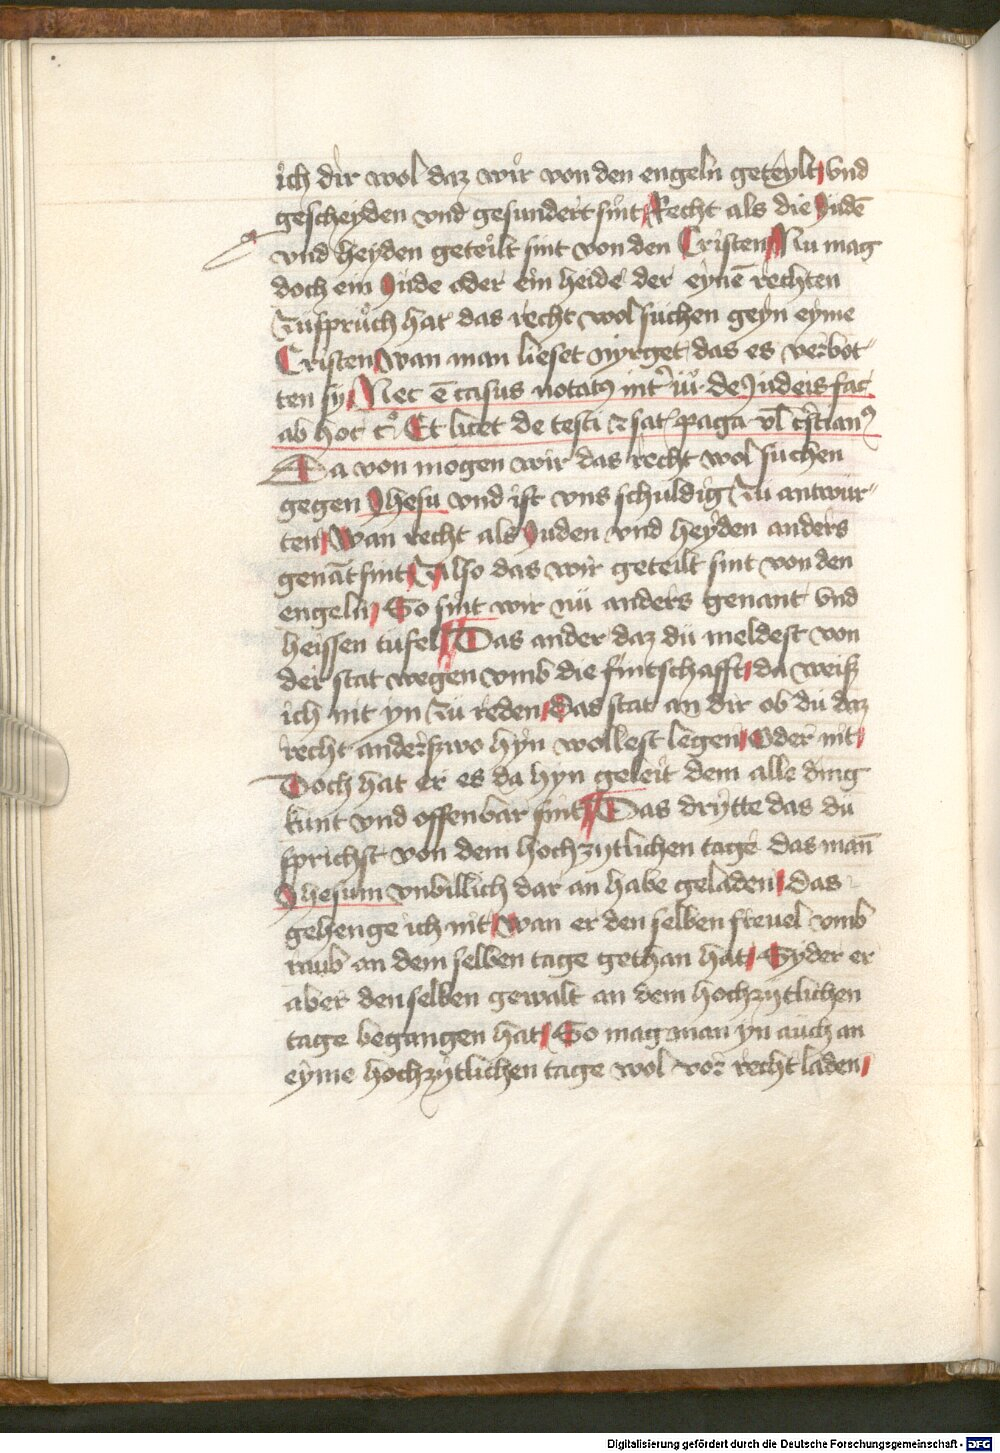 ich dir wol daz wir von den engeln geteylt vnd
gescheyden vnd gesundert sint Recht als die Judē
vnd heyden geteilt sint von den Cristen Nu mag
doch ein Jude oder ein heide der eynē rechten
zuspruch hat das recht wol suchen geyn eyme
Cristen wan man lieset nyrget das es verbot
ten sy Nec ē casus notatus de Judeis
ab hoc Et licet de
Da von mogen wir das recht wol suchen
gegen Jhesu vnd ist vns schuldig zu antwur
ten wan recht als Juden vnd heyden anders
genāt sint Also das wir geteilt sint von den
engeln So sint wir nü anders genant vnd
heissen tüfel Das ander daz dü meldest von
der stat wegen vmb die fintschafft da weiß
ich nit yn zü reden Das stat an dir ob dü daz
recht anderßwo hyn wollest legen Oder nit
Doch hat er es da hyn geleit dem alle ding
kunt vnd offenbar sint Das drytte das du
sprichst von dem hochzytlichen tage das man
Jhesum vnbillich dar an habe geladen das
gehenge ich nit wan er den selben freuel vmb
raub an dem selben tage gethan hat Syder er
aber den selben gewalt an dem hochzytlichen
tage begangen hat So mag man yn auch an
eyme hochzytlichen tage wol vor recht laden
Digitalisierung gefördert durch die Deutsche Forschungsgemeinschaft - DFG